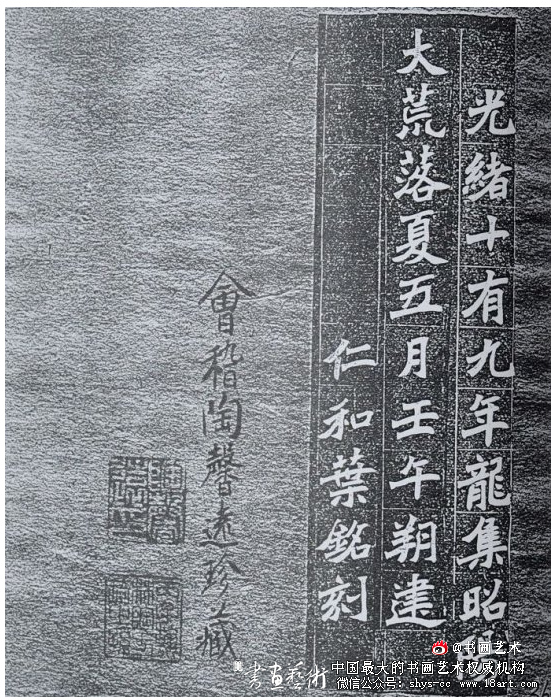 光緒十有九年龍集昭陽
大荒落夏五月壬午朔建
仁和葉銘刻
會稽陶馨遠珍藏
@书画艺术
書画藝術
中国最大的书画艺术权威机构
微信公众号：shys-cc www.18art.com